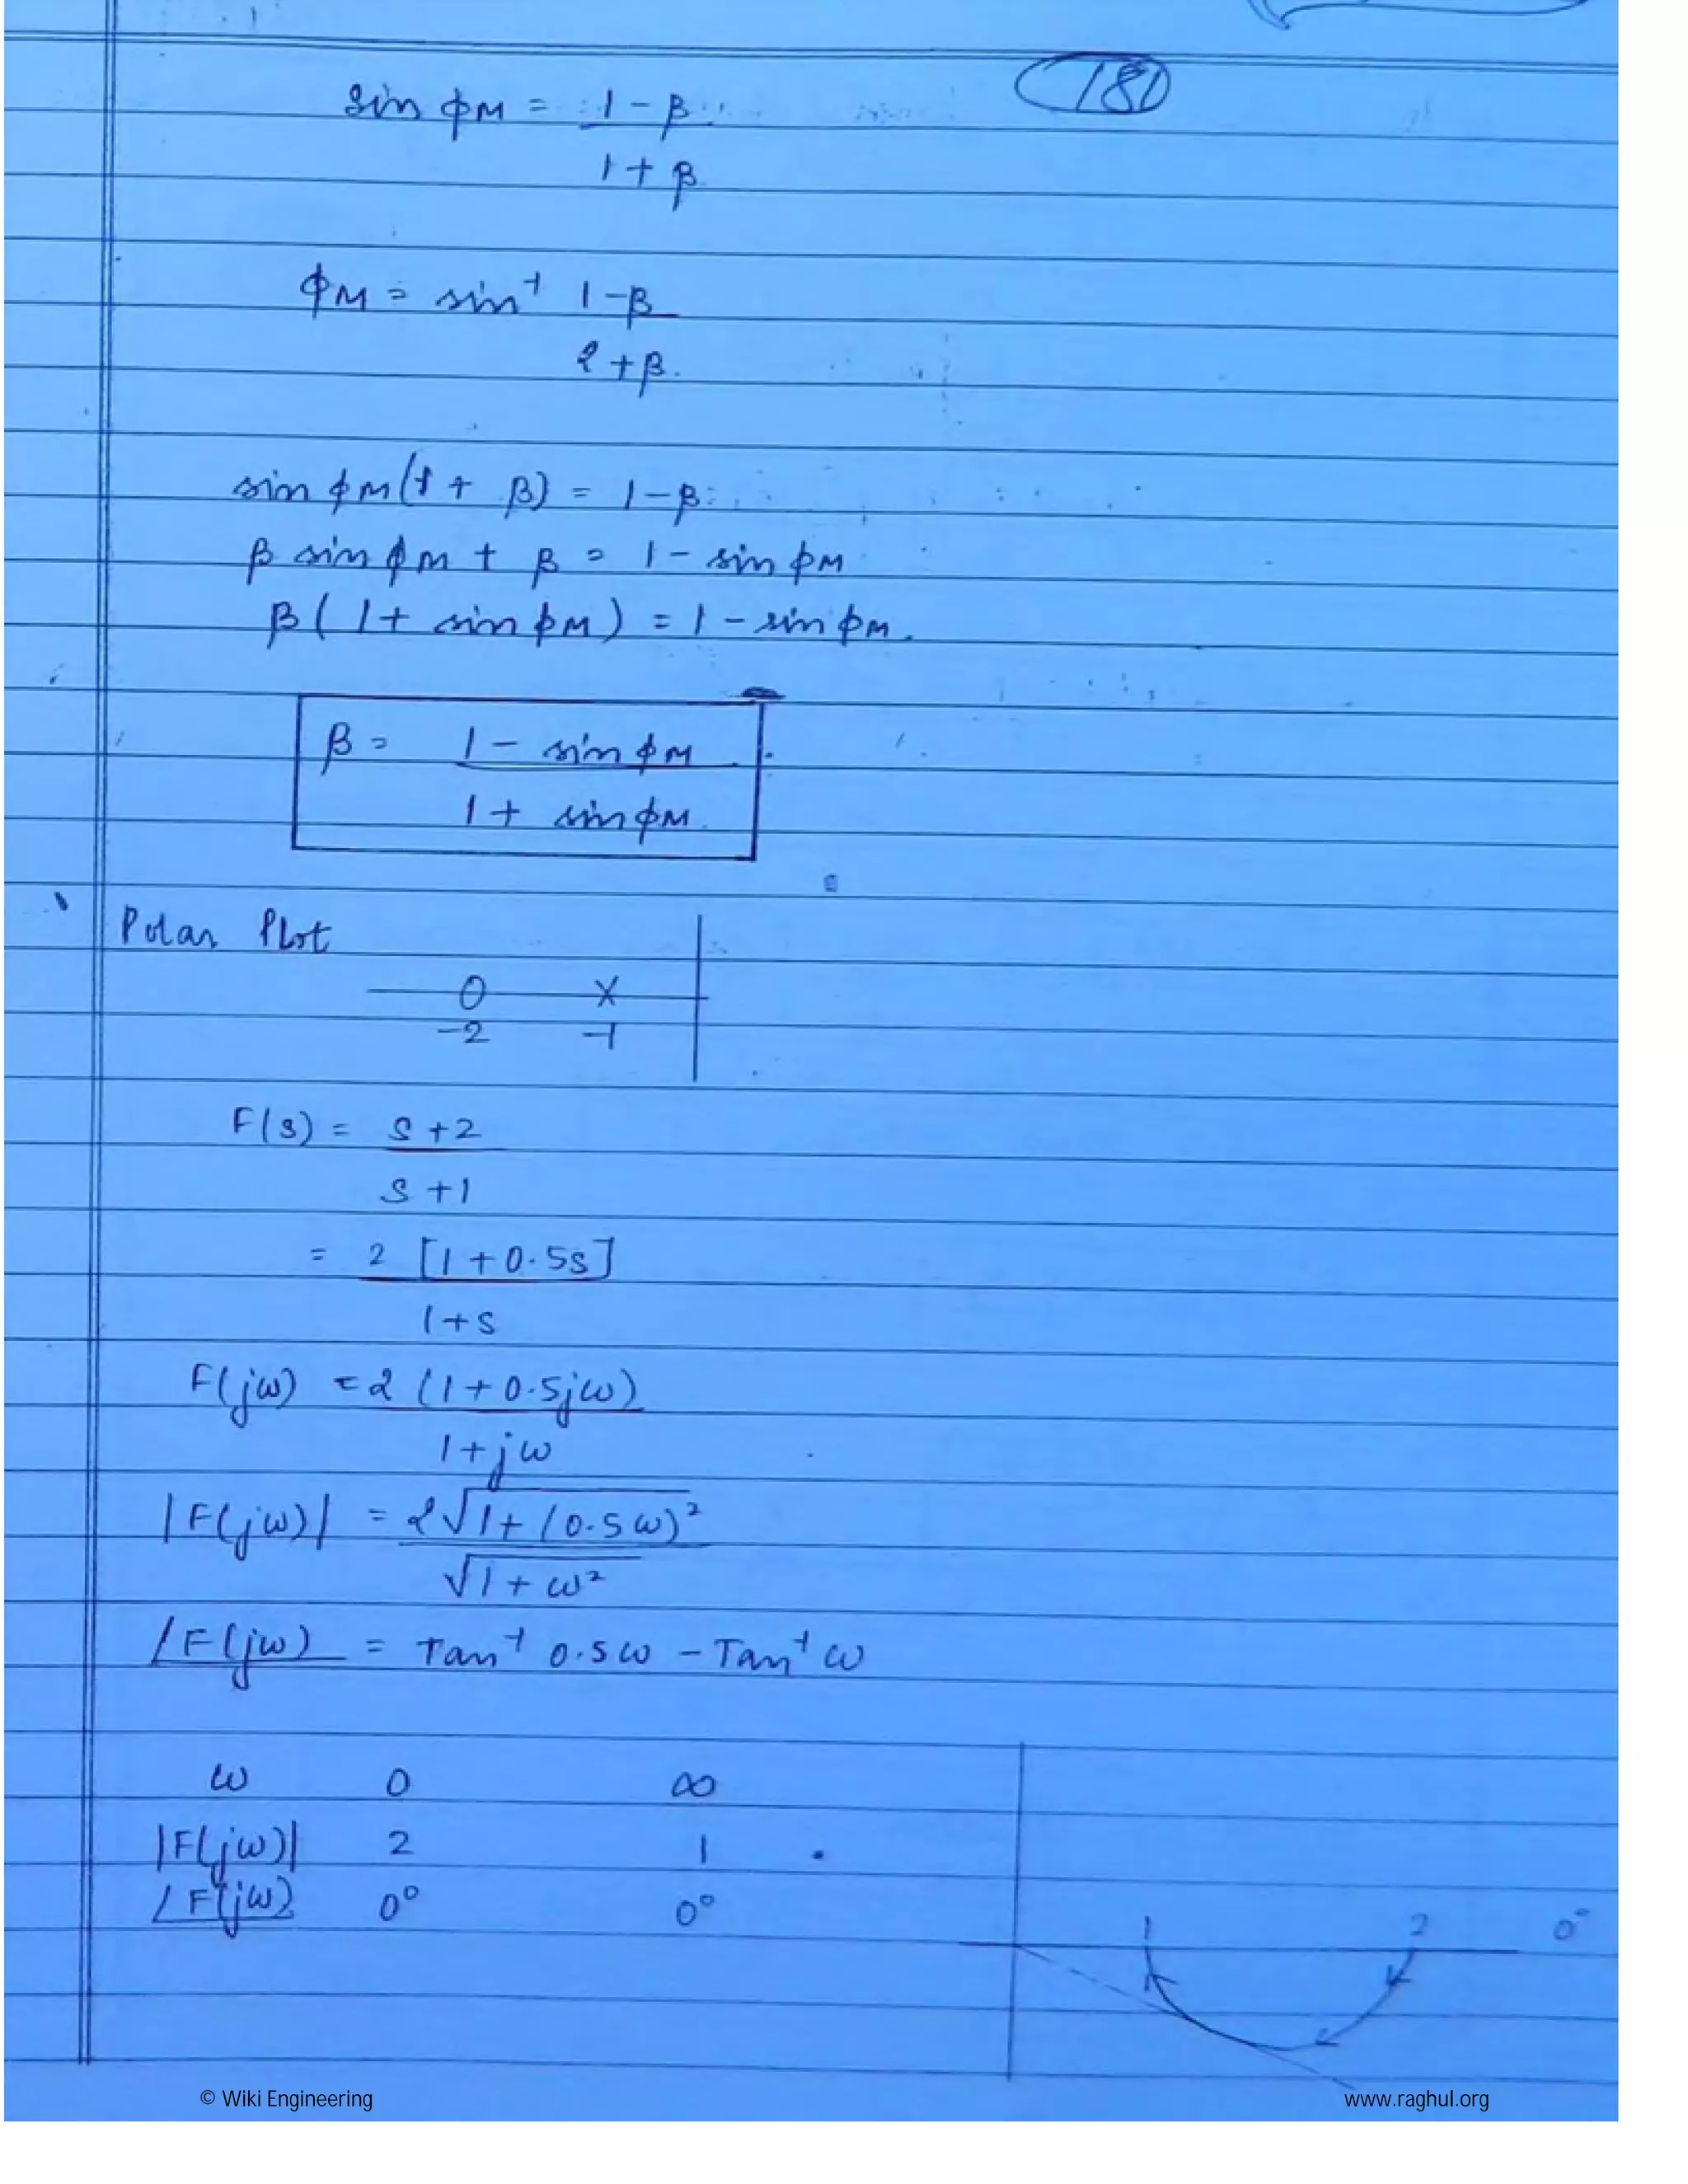 181
sin ϕM = 1 - β
1 + β
ϕM = sin⁻¹ 1 - β
2 + β
sin ϕM (1 + β) = 1 - β
β sin ϕM + β = 1 - sin ϕM
β ( 1 + sin ϕM ) = 1 - sin ϕM.
β = 1 - sin ϕM
1 + sin ϕM
Polar Plot
-2 -1
F(s) = s + 2
s + 1
= 2 [1 + 0.5s]
1 + s
F(jω) = 2 (1 + 0.5jω)
1 + jω
|F(jω)| = 2√1 + (0.5ω)²
√1 + ω²
∠F(jω) = Tan⁻¹ 0.5ω - Tan⁻¹ ω
ω 0 ∞
|F(jω)| 2 1
∠F(jω) 0° 0°
1 2 0°
© Wiki Engineering www.raghul.org